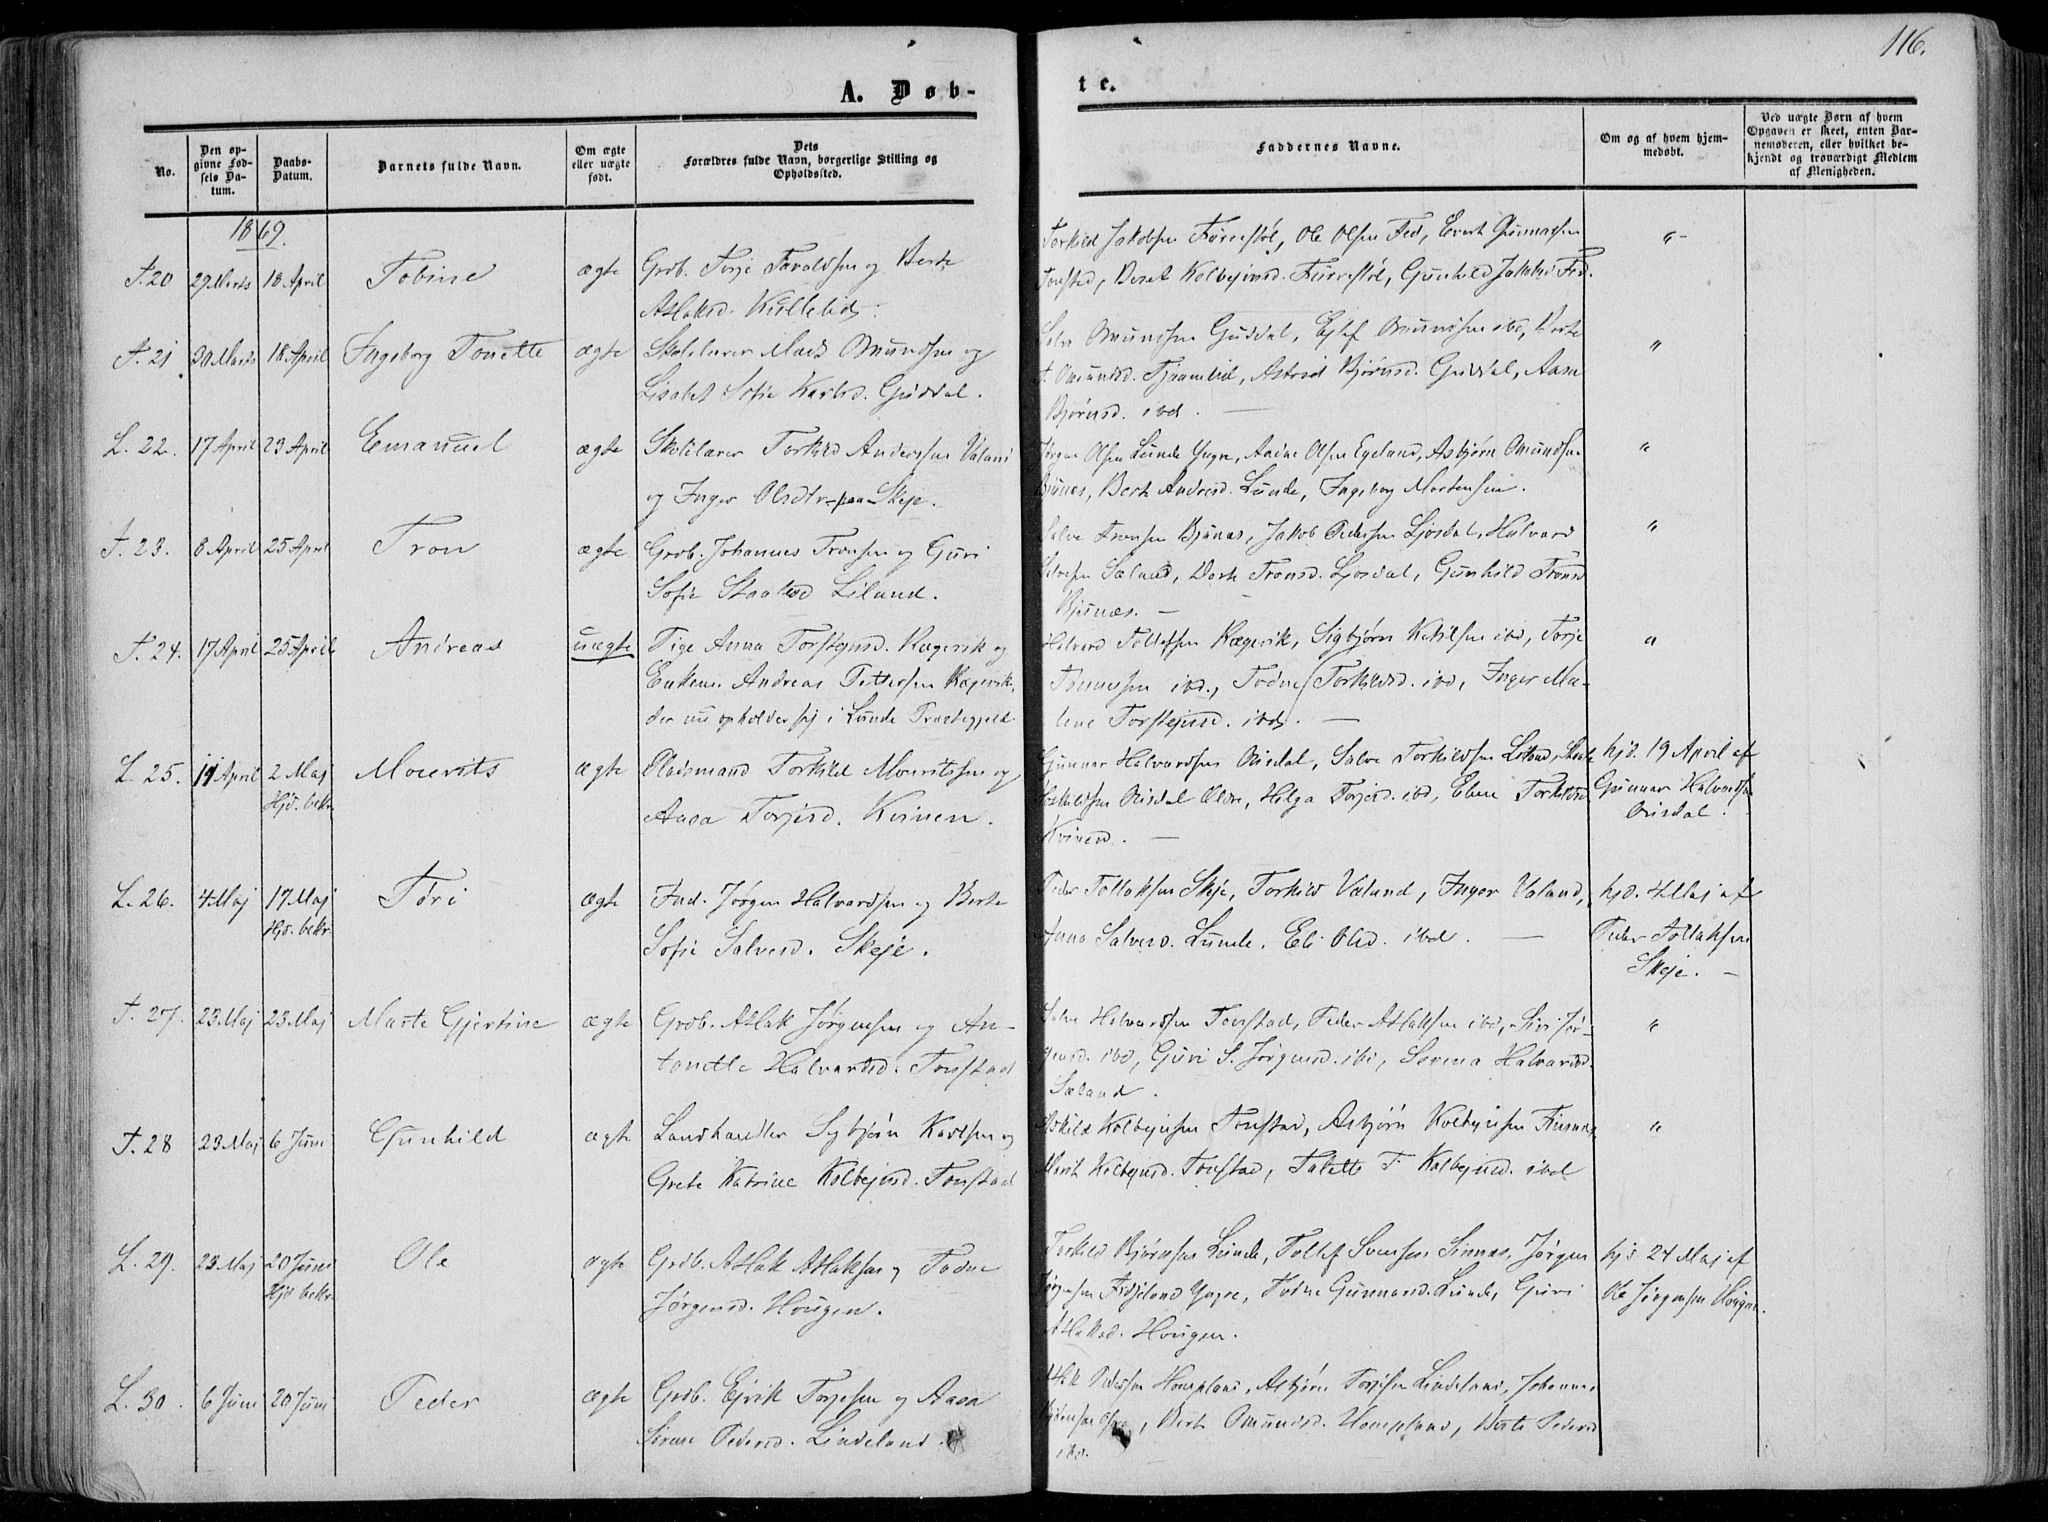 116.
A. Døb-
te.
No.
Den op-
givne Fød-
sels Da-
tum.
Daabs-
Datum.
Barnets fulde Navn.
Om ægte
eller uægte
født.
Dets
Forældres fulde Navn, borgerlige Stilling og
Opholdssted.
Faddernes Navne.
Om og af hvem hjem-
medøbt.
Ved uægte Børn af hvem
Opgaven er skeet, enten Bar-
nemoderen, eller hvilket be-
kjendt og troværdigt Medlem
af Menigheden.
1869.
T. 20 29 Marts 18 April Tobine ægte Grdb. Torje Tavaldsen og Berte
Atlaksd.
Torkild Jakobsen, Ole Olsen Fed, Evert Gunnarsen
Tonstad, Beret Kolbejnsd., Gunhild Jakobsd Fed.
"
T. 21 30 Marts 18 April Ingeborg Tonette ægte Skolelærer Mads Omundsen og
Lisabet Sofie Karlsd. Guddal.
Omundsen Guddal, Ejlef Omundsen ibd, Berte
Omundsd., Astrid Bjørnsd. Guddal, Aasa
Bjørnsd. ibd. —
"
L. 22. 17 April 23 April Emanuel ægte Skolelærer Torkild Andersen Valand
og Inger Olsdtr. paa Skeje.
Jørgen Olsen Lunde Yngre, Aadne Olsen Egeland, Asbjørn Omundsen
Bjunes, Berte Andersd. Lunde, Ingeborg Mortensen.
"
T. 23. 8 April 25 April Tron ægte Grdb. Johannes Tronsen og Guri
Sofie Liland.
Salve Tronsen Bjunas, Jakob Pedersen Ljosdal, Halvard
Salvesen Sæland, Dorte Tronsd. Ljosdal, Gunhild Tronsd
Bjunæs. —
"
T. 24. 17 April 25 April Andreas uægte Pige Anna Torstejnsd. Rægevik og
Enkem. Andreas Pettersen Rægevik,
der nu opholder sig i Lunde Præstegjeld.
Halvard Tollefsen Rægevik, Sigbjørn Ketilsen ibd, Torje
Tønnesen ibd., Todne Torkildsd. ibd, Inger Ma-
lene Torstejnsd. ibd. —
"
L. 25. 19 April 2 Maj Mourits ægte Pladsmand Torkild Mouritssen og
Hjd. bekr. Aasa Torjesd. Kvinen.
Gunnar Halvardsen Risdal, Salve Torkildsen
Torkildsen Risdal Eldre, Helga Torjesd. ibd, Elene Torkildsd
Kvinen. —
hjd. 19 April af
Gunnar Halvardsen
Risdal.
L. 26. 4 Maj 17 Maj Tøri ægte Ind. Jørgen Halvardsen og Berte
Hjd. bekr. Sofie Salvesd. Skeje.
Peder Tollaksen Skeje, Torkild Valand, Inger Valand,
Anna Salvesd. Lunde. Eli Olsd. ibd. —
hjd. 4 Maj af
Peder Tollaksen
Skeje. —
T. 27. 23 Maj 23 Maj Marte Gjertine ægte Grdb. Atlak Jørgensen og An-
tonette Halvardsd. Tonstad
Salve Halvardsen Tonstad, Peder Atlaksen ibd, Siri Jør-
gensd. ibd, Guri S. Jørgensd. ibd, Serina Halvardsd.
Sæland.
"
T. 28 23 Maj 6 Juni Gunhild ægte Landhandler Sigbjørn Karlsen og
Grete Katrine Kolbejnsd. Tonstad
Askild Kolbejnsen Tonstad, Asbjørn Kolbejnsen Finsnes,
Marit Kolbejnsd. Tonstad, Talette T. Kolbejnsd. ibd
"
L. 29. 23 Maj 20 Juni Ole ægte Grdb. Atlak Atlaksen og Todne
Hjd bekr. Jørgensd. Hougen.
Torkild Bjørnsen Lunde, Tollef Svensen Sinnes, Jørgen
Jørgensen Fidjeland Yngre, Todne Gunnarsd. Lunde, Guri
Atlaksd. Hougen.
hjd 24 Maj af
Ole Jørgensen Hougen.
L. 30. 6 Juni 20 Juni Peder ægte Grdb. Ejvik Torjesen og Aasa
Sirene Pedersd. Lindeland.
Atlak Pedersen Hompland, Asbjørn Torjesen Lindeland, Johannes
Berte Omundsd. Hompland, Berte Pedersd
ibd.